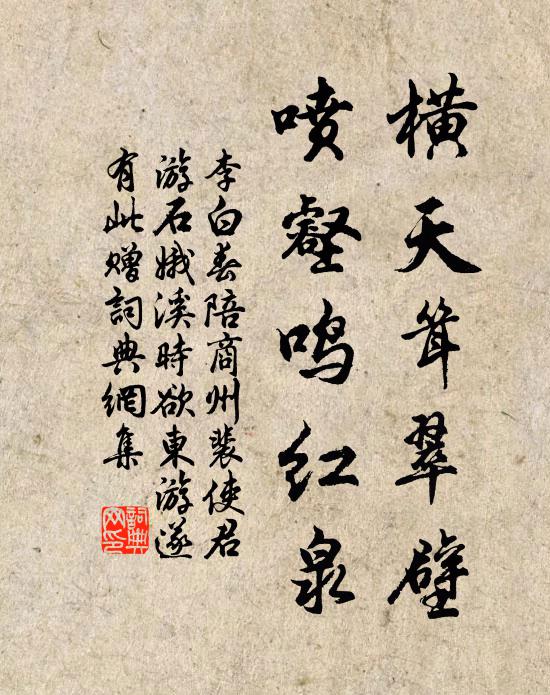 横天耸翠壁
喷壑鸣红泉
李白春陪商州裴使君
游石娥溪時欲東游遂
有此赠詞典網集
詞典网印